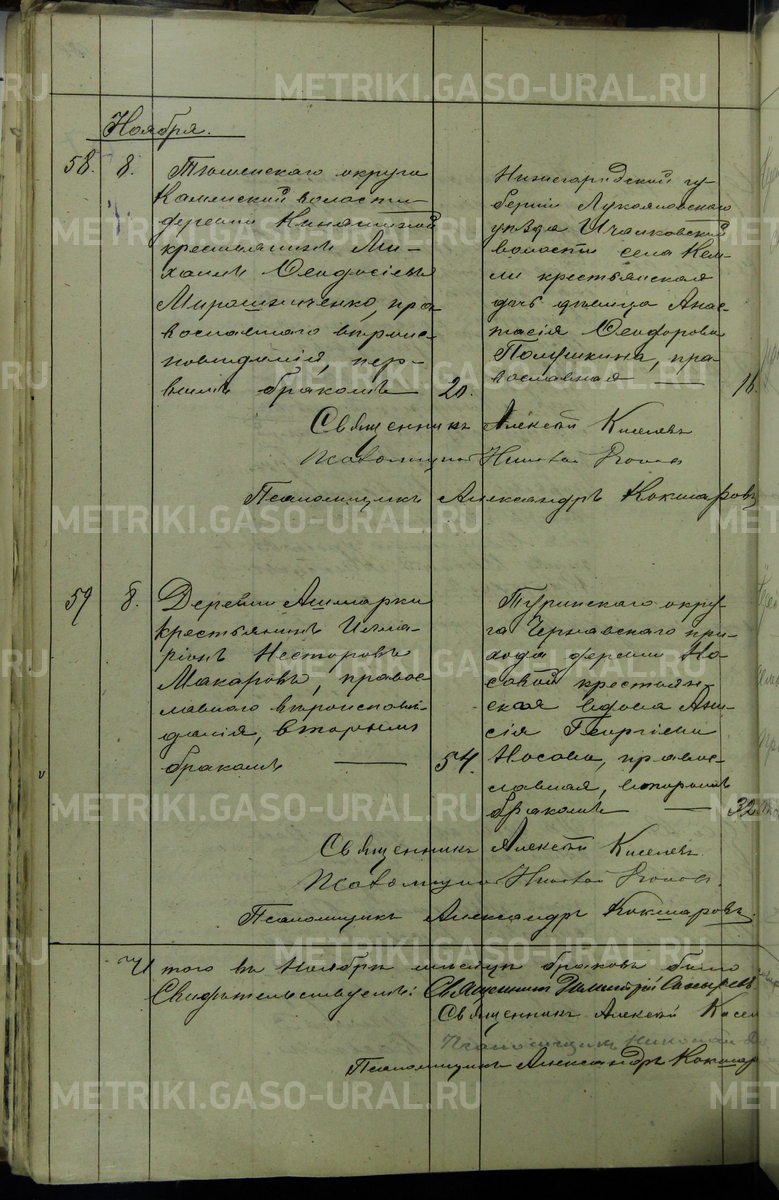 Ноября.
58. 8. Тюменскаго округа
Каменской волости
деревни Кинашиной
крестьянинъ Ми-
хаилъ Ѳеодосіевъ
Мирошниченко, пра-
вославнаго вѣроис-
повѣданія, пер-
вымъ бракомъ 20.
Нижегородской гу-
берніи Лукояновскаго
уѣзда Ичалковской
волости села Кем-
ли крестьянская
дочь дѣвица Анас-
тасія Ѳеодорова
Полушкина, пра-
вославная 16.
Священникъ Алексѣй Киселевъ
Псаломщикъ Николай Попов
Псаломщикъ Александръ Кокшаровъ
59 8. Деревни Ашмарки
крестьянинъ Илла-
ріонъ Несторовъ
Макаровъ, правос-
лавнаго вѣроисповѣ-
данія, вторымъ
бракомъ 54.
Туринскаго окру-
га Чернавскаго при-
хода деревни Но-
совой крестьян-
ская вдова Ани-
сія Георгіева
Носова, правос-
лавная, вторымъ
бракомъ 32
Священникъ Алексѣй Киселевъ.
Псаломщикъ Николай Попов.
Псаломщикъ Александръ Кокшаровъ.
Итого въ Ноябрѣ мѣсяцѣ браковъ было
Свидѣтельствуемъ: Священникъ Димитрій
Священникъ Алексѣй Кисел
Псаломщикъ Николай
Псаломщикъ Александръ Кокшар
METRIKI.GASO-URAL.RU